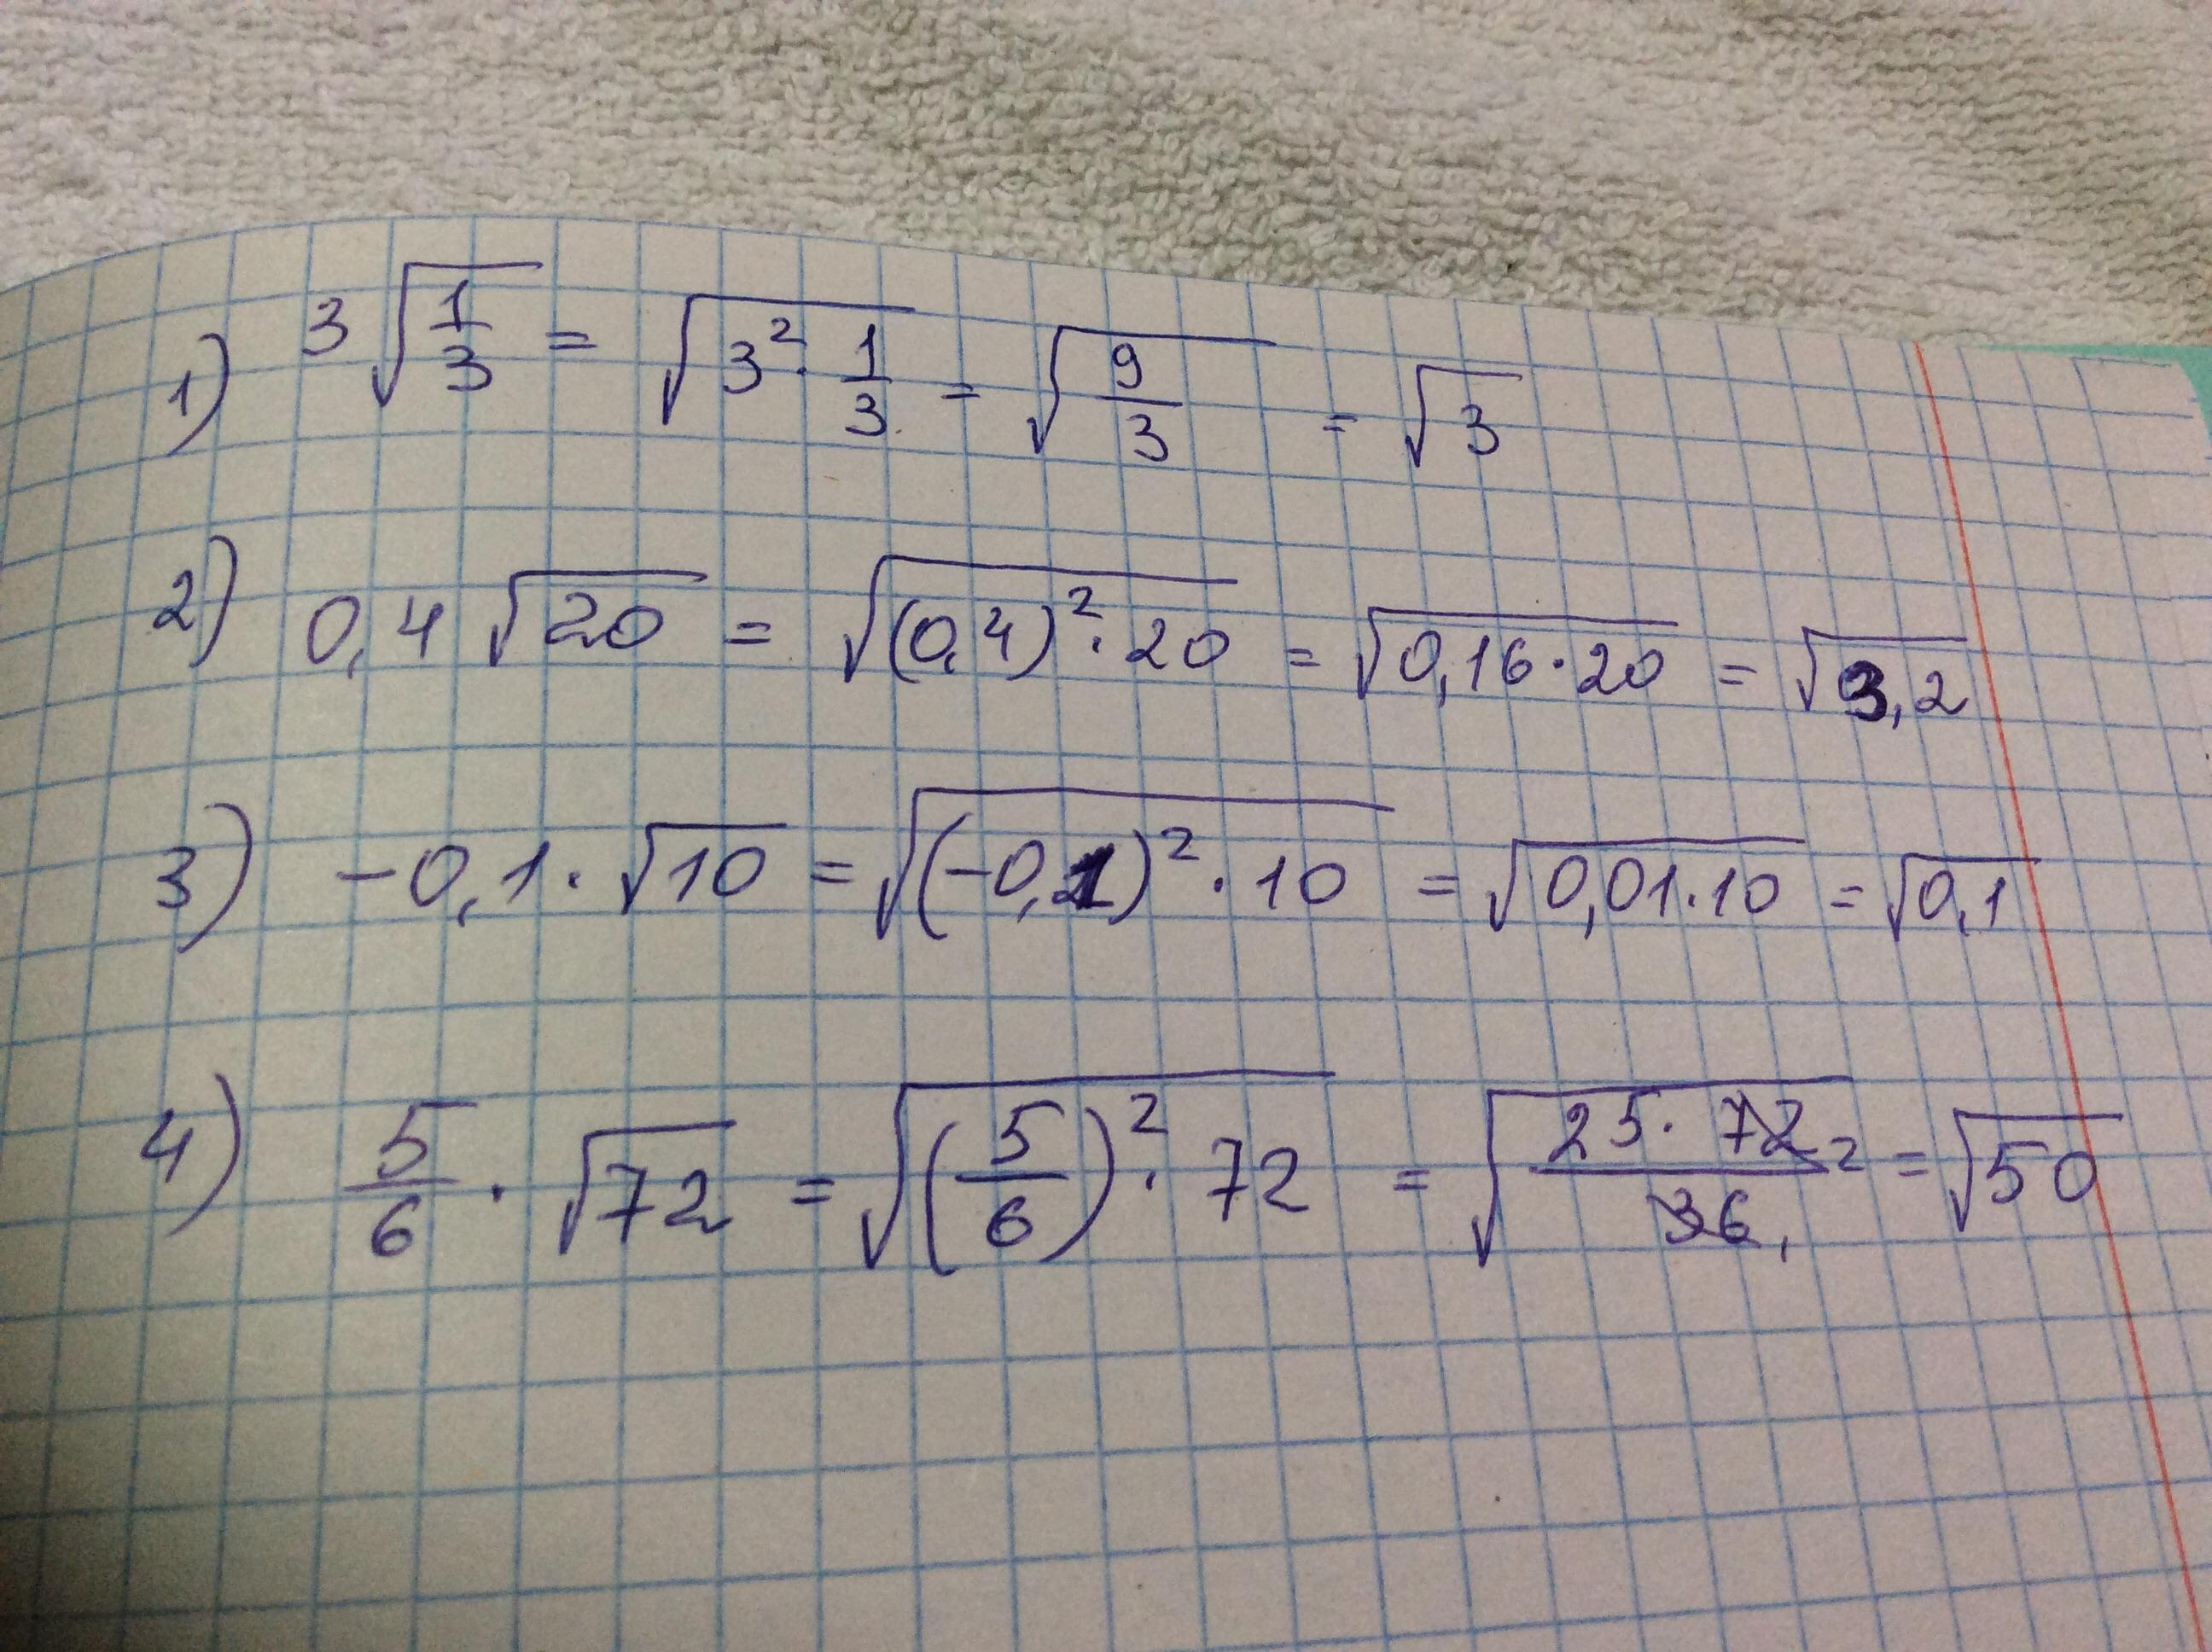 1) 3√(1/3) = √(3² · 1/3) = √(9/3) = √3
2) 0,4 √20 = √((0,4)² · 20) = √(0,16 · 20) = √3,2
3) −0,1 · √10 = √((−0,1)² · 10) = √(0,01 · 10) = √0,1
4) 5/6 · √72 = √((5/6)² · 72) = √(25 · 72 2/36 1) = √50